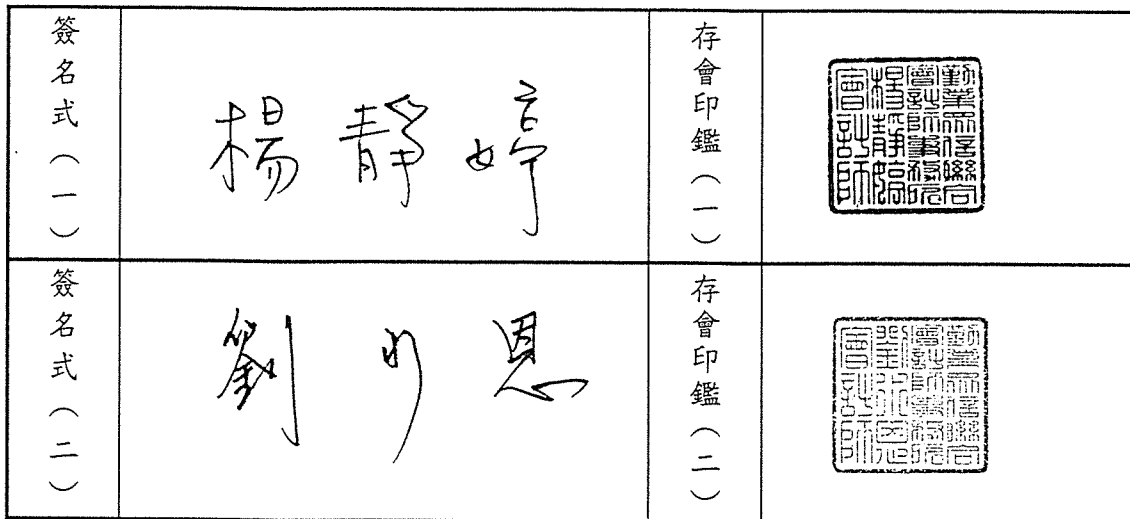 簽名式（一）
楊靜婷
存會印鑑（一）
勤業眾信聯合
會計師事務所
楊靜婷
會計師
簽名式（二）
劉水恩
存會印鑑（二）
勤業眾信聯合
會計師事務所
劉水恩
會計師